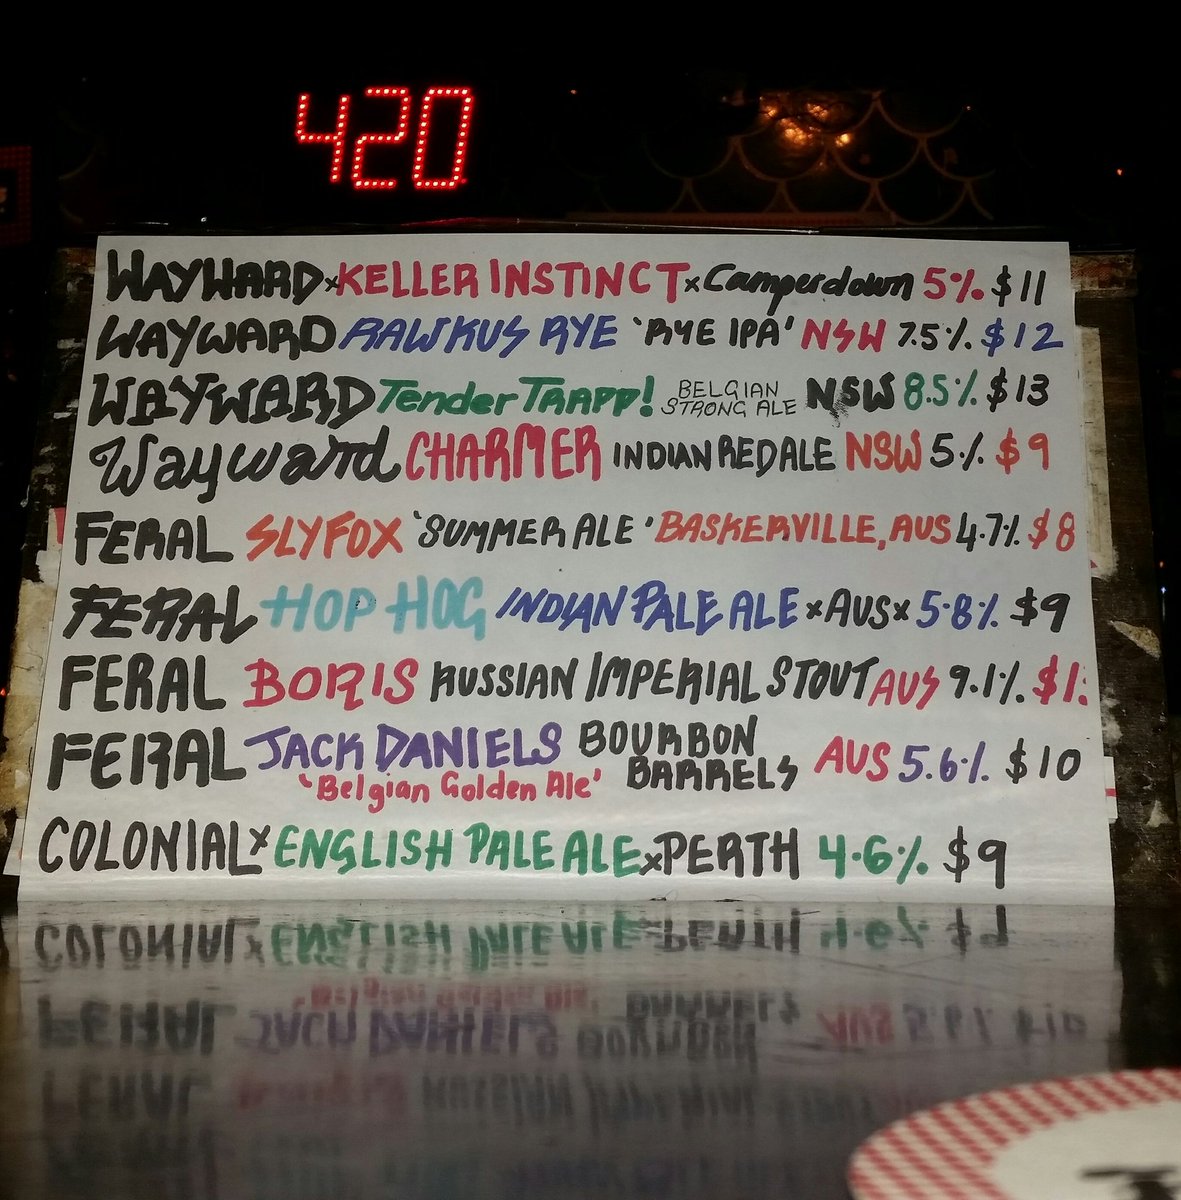 420
WAYWARD x KELLER INSTINCT x Camperdown 5% $11
WAYWARD RAWKUS RYE 'RYE IPA' NSW 7.5% $12
WAYWARD Tender TRAPP! BELGIAN STRONG ALE NSW 8.5% $13
Wayward CHARMER INDIAN RED ALE NSW 5% $9
FERAL SLY FOX 'SUMMER ALE' BASKERVILLE, AUS 4.7% $8
FERAL HOP HOG INDIAN PALE ALE x AUS x 5.8% $9
FERAL BORIS RUSSIAN IMPERIAL STOUT AUS 9.1%
FERAL JACK DANIELS BOURBON BARRELS AUS 5.6% $10
'Belgian Golden Ale'
COLONIAL x ENGLISH PALE ALE x PERTH 4.6% $9